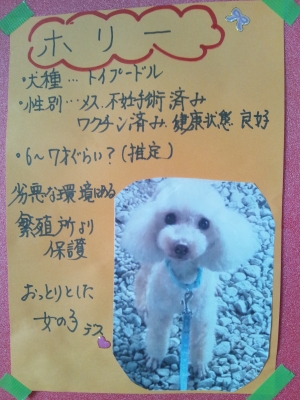 ホリー
・犬種…トイプードル
・性別…メス.不妊手術済み
ワクチン済み.健康状態良好
・6～7才ぐらい？(推定)
劣悪な環境ある
繁殖所より
保護
おっとりとした
女の子デス